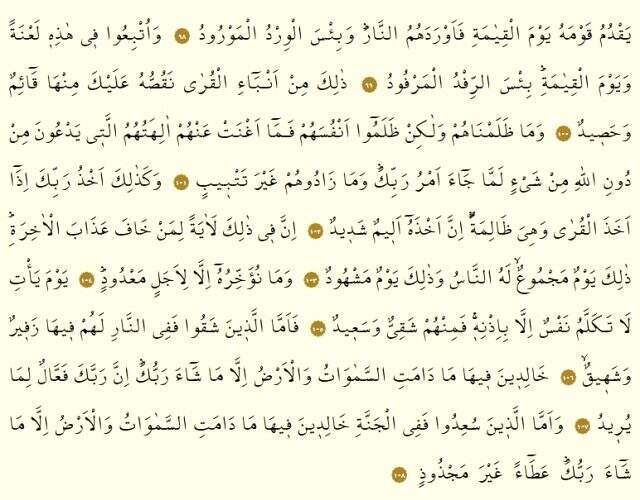 يَقْدُمُ قَوْمَهُ يَوْمَ الْقِيٰمَةِ فَاَوْرَدَهُمُ النَّارَۜ وَبِئْسَ الْوِرْدُ الْمَوْرُودُ ﴿٩٨﴾ وَاُتْبِعُوا ف۪ي هٰذِه۪ لَعْنَةً
وَيَوْمَ الْقِيٰمَةِۜ بِئْسَ الرِّفْدُ الْمَرْفُودُ ﴿٩٩﴾ ذٰلِكَ مِنْ اَنْبَٓاءِ الْقُرٰى نَقُصُّهُ عَلَيْكَ مِنْهَا قَٓائِمٌ
وَحَص۪يدٌ ﴿١٠٠﴾ وَمَا ظَلَمْنَاهُمْ وَلٰكِنْ ظَلَمُٓوا اَنْفُسَهُمْ فَمَٓا اَغْنَتْ عَنْهُمْ اٰلِهَتُهُمُ الَّت۪ي يَدْعُونَ مِنْ
دُونِ اللّٰهِ مِنْ شَيْءٍ لَمَّا جَٓاءَ اَمْرُ رَبِّكَۜ وَمَا زَادُوهُمْ غَيْرَ تَتْب۪يبٍ ﴿١٠١﴾ وَكَذٰلِكَ اَخْذُ رَبِّكَ اِذَٓا
اَخَذَ الْقُرٰى وَهِيَ ظَالِمَةٌۜ اِنَّ اَخْذَهُٓ اَل۪يمٌ شَد۪يدٌ ﴿١٠٢﴾ اِنَّ ف۪ي ذٰلِكَ لَاٰيَةً لِمَنْ خَافَ عَذَابَ الْاٰخِرَةِۜ
ذٰلِكَ يَوْمٌ مَجْمُوعٌۙ لَهُ النَّاسُ وَذٰلِكَ يَوْمٌ مَشْهُودٌ ﴿١٠٣﴾ وَمَا نُؤَخِّرُهُٓ اِلَّا لِاَجَلٍ مَعْدُودٍۜ ﴿١٠٤﴾ يَوْمَ يَأْتِ
لَا تَكَلَّمُ نَفْسٌ اِلَّا بِاِذْنِه۪ۚ فَمِنْهُمْ شَقِيٌّ وَسَع۪يدٌ ﴿١٠٥﴾ فَاَمَّا الَّذ۪ينَ شَقُوا فَفِي النَّارِ لَهُمْ ف۪يهَا زَف۪يرٌ
وَشَه۪يقٌۙ ﴿١٠٦﴾ خَالِد۪ينَ ف۪يهَا مَا دَامَتِ السَّمٰوَاتُ وَالْاَرْضُ اِلَّا مَا شَٓاءَ رَبُّكَۜ اِنَّ رَبَّكَ فَعَّالٌ لِمَا
يُر۪يدُ ﴿١٠٧﴾ وَاَمَّا الَّذ۪ينَ سُعِدُوا فَفِي الْجَنَّةِ خَالِد۪ينَ ف۪يهَا مَا دَامَتِ السَّمٰوَاتُ وَالْاَرْضُ اِلَّا مَا
شَٓاءَ رَبُّكَۜ عَطَٓاءً غَيْرَ مَجْذُوذٍ ﴿١٠٨﴾